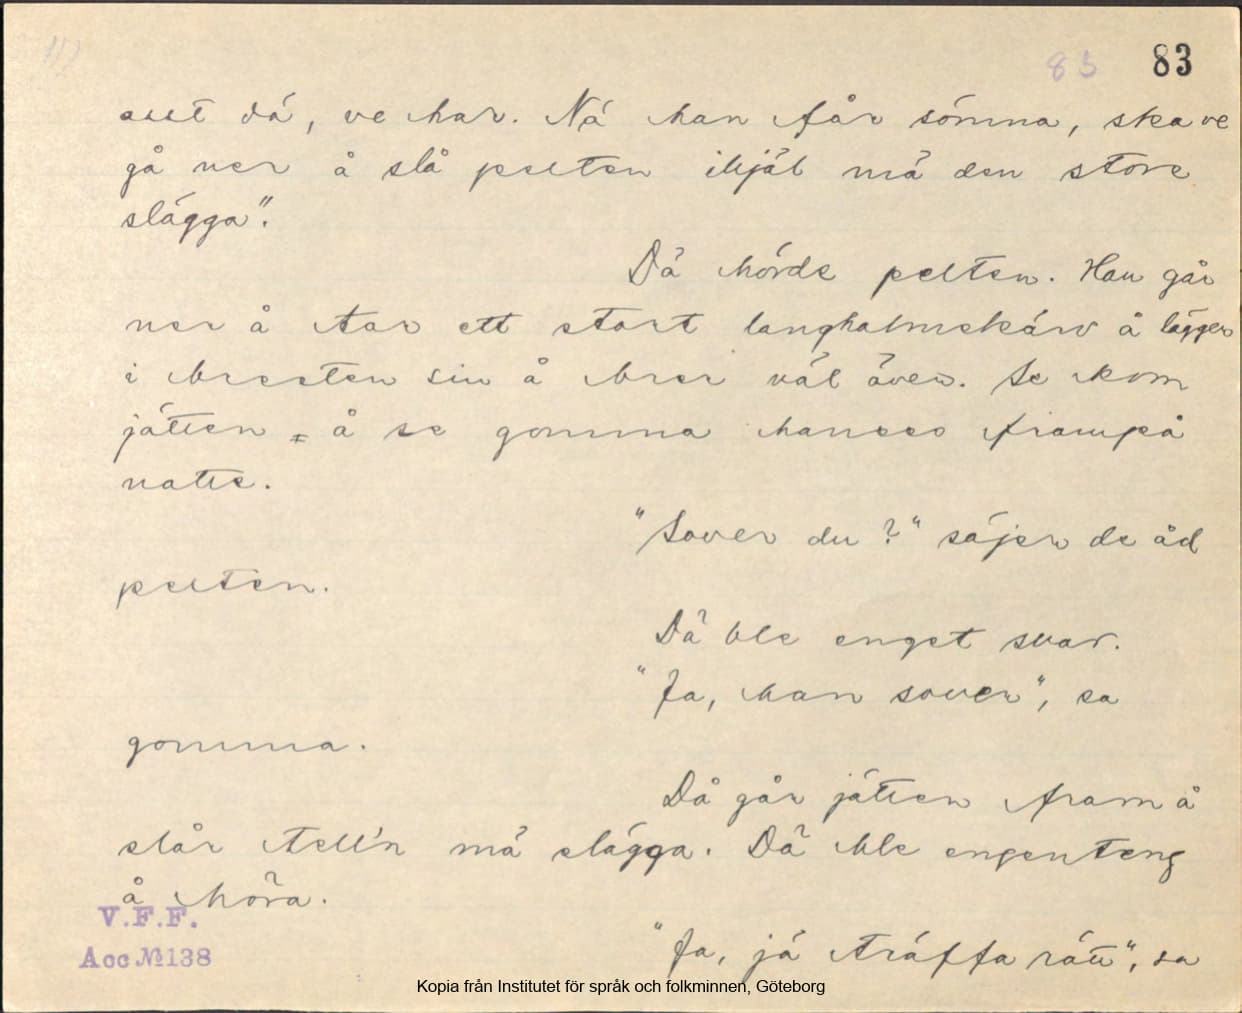 83 83
allt då, ve har. Nä han får sömna, ska ve
gå ner å slå pelten ihjäl mä den store
slägga".
Dä hörde pelten. Han går
ner å tar ett stort langhalmskärv å lägger
i bresten sin å brer väl över. Se kom
jätten å se gomma hanses frampå
natte.
"Sover du?" säjer de åd
pelten.
Dä ble enget svar.
"Ja, han sover", sa
gomma.
Då går jätten fram å
slår tell'n mä slägga. Dä ble engenteng
å höra.
V.F.F.
Acc № 138
"Ja, jä träffa rätt", sa
Kopia från Institutet för språk och folkminnen, Göteborg